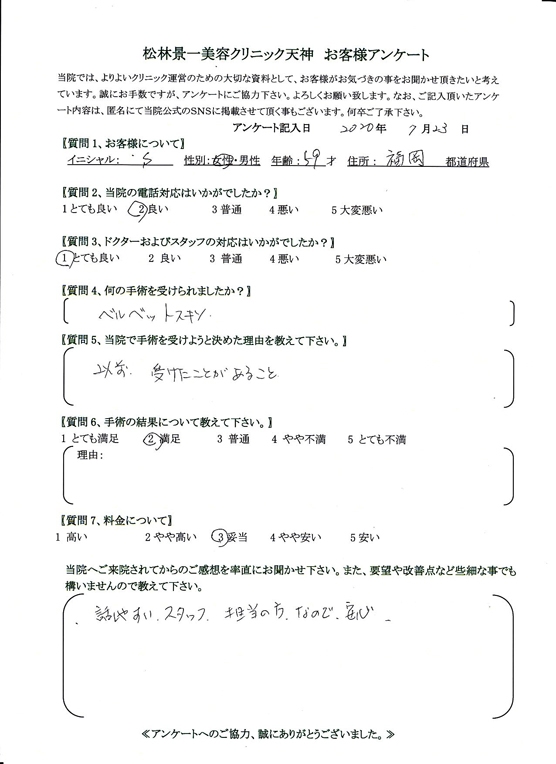 松林景一美容クリニック天神 お客様アンケート
当院では、よりよいクリニック運営のための大切な資料として、お客様がお気づきの事をお聞かせ頂きたいと考え
ています。誠にお手数ですが、アンケートにご協力下さい。よろしくお願い致します。なお、ご記入頂いたアンケ
ート内容は、匿名にて当院公式のSNSに掲載させて頂く事もございます。何卒ご了承下さい。
アンケート記入日 2020年 7月23日
【質問1、お客様について】
イニシャル: S 性別:女性・男性 年齢:59才 住所:福岡 都道府県
【質問2、当院の電話対応はいかがでしたか?】
1とても良い 2良い 3普通 4悪い 5大変悪い
【質問3、ドクターおよびスタッフの対応はいかがでしたか?】
1とても良い 2 良い 3 普通 4悪い 5大変悪い
【質問4、何の手術を受けられましたか?】
ベルベットスキン.
【質問5、当院で手術を受けようと決めた理由を教えて下さい。】
以前. 受けたことがあること
【質問6、手術の結果について教えて下さい。】
1 とても満足 2満足 3 普通 4 やや不満 5 とても不満
理由:
【質問7、料金について】
1 高い 2やや高い 3妥当 4やや安い 5安い
当院へご来院されてからのご感想を率直にお聞かせ下さい。また、要望や改善点など些細な事でも
構いませんので教えて下さい。
話しやすい.スタッフ. 担当の方.なので.安心.
≪アンケートへのご協力、誠にありがとうございました。≫